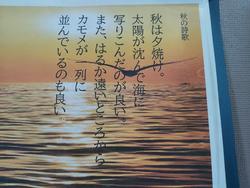 秋の詩歌
秋は夕焼け。
太陽が沈んで海に
写りこんだのが良い。
また、はるか遠いところから
カモメが一列に
並んでいるのも良い